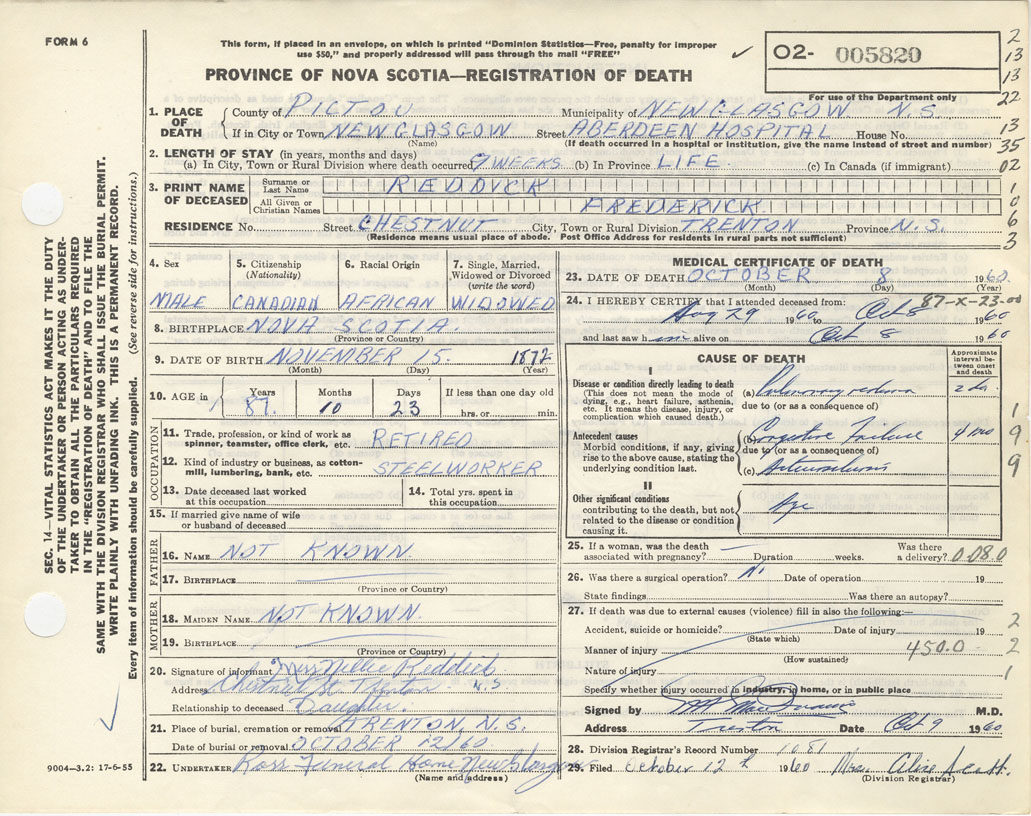 FORM 6
This form, if placed in an envelope, on which is printed "Dominion Statistics—Free, penalty for improper
use $50," and properly addressed will pass through the mail "FREE"
PROVINCE OF NOVA SCOTIA—REGISTRATION OF DEATH
02- 005820
For use of the Department only
2
13
13
22
13
35
02
1
0
6
3
1. PLACE OF DEATH
County of PICTOU Municipality of NEW GLASGOW N.S.
If in City or Town NEW GLASGOW Street ABERDEEN HOSPITAL House No.
(Name) (If death occurred in a hospital or institution, give the name instead of street and number)
2. LENGTH OF STAY (in years, months and days)
(a) In City, Town or Rural Division where death occurred 7 WEEKS (b) In Province LIFE (c) In Canada (if immigrant)
3. PRINT NAME OF DECEASED
Surname or Last Name REDDICK
All Given or Christian Names FREDERICK
RESIDENCE No. Street CHESTNUT City, Town or Rural Division TRENTON Province N.S.
(Residence means usual place of abode. Post Office Address for residents in rural parts not sufficient)
4. Sex 5. Citizenship (Nationality) 6. Racial Origin 7. Single, Married, Widowed or Divorced (write the word)
MALE CANADIAN AFRICAN WIDOWED
8. BIRTHPLACE NOVA SCOTIA.
(Province or Country)
9. DATE OF BIRTH NOVEMBER 15. 1872
(Month) (Day) (Year)
10. AGE in Years Months Days If less than one day old
87. 10 23 hrs. or min.
OCCUPATION
11. Trade, profession, or kind of work as spinner, teamster, office clerk, etc. RETIRED
12. Kind of industry or business, as cotton-mill, lumbering, bank, etc. STEELWORKER
13. Date deceased last worked at this occupation
14. Total yrs. spent in this occupation
15. If married give name of wife or husband of deceased
FATHER
16. NAME NOT KNOWN
17. BIRTHPLACE
(Province or Country)
MOTHER
18. MAIDEN NAME NOT KNOWN
19. BIRTHPLACE
(Province or Country)
20. Signature of informant Nellie Reddick
Address Chestnut St. Trenton N.S
Relationship to deceased Daughter.
21. Place of burial, cremation or removal TRENTON, N.S.
Date of burial or removal OCTOBER 12/60
22. UNDERTAKER Ross Funeral Home New Glasgow
(Name and address)
MEDICAL CERTIFICATE OF DEATH
23. DATE OF DEATH OCTOBER 8 1960.
(Month) (Day) (Year)
24. I HEREBY CERTIFY that I attended deceased from: 87-X-23-00
Aug 29 1960 to Oct 8 1960
and last saw h im alive on Oct 8 1960
CAUSE OF DEATH
Approximate interval between onset and death
I
Disease or condition directly leading to death
(This does not mean the mode of dying, e.g., heart failure, asthenia, etc. It means the disease, injury, or complication which caused death.)
(a) Pulmonary
due to (or as a consequence of)
Antecedent causes
Morbid conditions, if any, giving rise to the above cause, stating the underlying condition last.
(b) Congestive Failure
due to (or as a consequence of)
(c)
II
Other significant conditions
contributing to the death, but not related to the disease or condition causing it.
Age
1
9
9
25. If a woman, was the death associated with pregnancy? Duration weeks. Was there a delivery? 0.080
26. Was there a surgical operation? No Date of operation 19
State findings Was there an autopsy?
27. If death was due to external causes (violence) fill in also the following:—
Accident, suicide or homicide? Date of injury 19 2
(State which)
Manner of injury 450.0 2
(How sustained)
Nature of injury 1
Specify whether injury occurred in industry, in home, or in public place
Signed by M.D.
Address Trenton Date Oct 9 1960
28. Division Registrar's Record Number 1081
29. Filed October 12th 1960 Alice
(Division Registrar)
SEC. 14—VITAL STATISTICS ACT MAKES IT THE DUTY
OF THE UNDERTAKER OR PERSON ACTING AS UNDER-
TAKER TO OBTAIN ALL THE PARTICULARS REQUIRED
IN THE "REGISTRATION OF DEATH" AND TO FILE THE
SAME WITH THE DIVISION REGISTRAR WHO SHALL ISSUE THE BURIAL PERMIT.
WRITE PLAINLY WITH UNFADING INK. THIS IS A PERMANENT RECORD.
Every item of information should be carefully supplied. (See reverse side for instructions.)
9004—3.2: 17-6-55